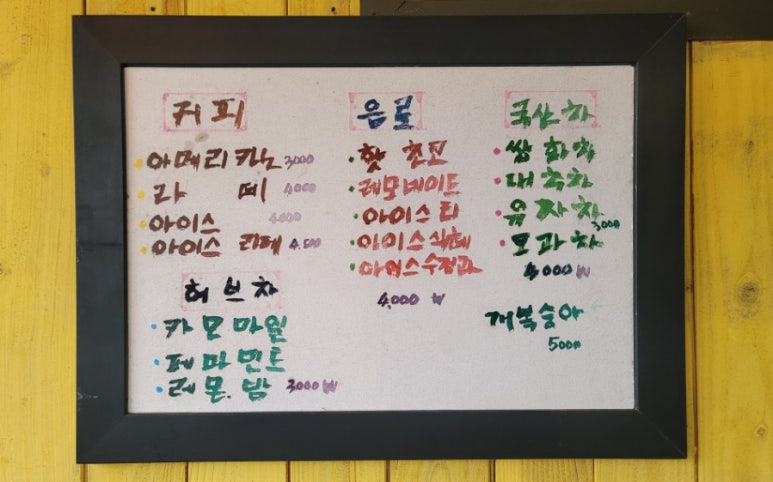 커피
아메리카노 3,000
라 떼 4,000
아이스 4,000
아이스 라떼 4,500
허브차
카모마일
페파민트
레몬.밤 3,000 ₩
음료
핫 초코
레모네이드
아이스티
아이스식혜
아이스수정과
4,000 ₩
국산차
쌍화차
대추차
유자차
3,000
모과차
4,000 ₩
개복숭아
5000